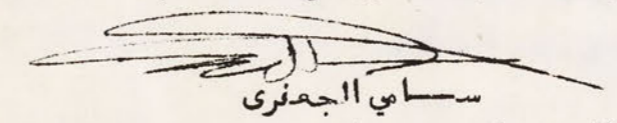 سامي الجعفري